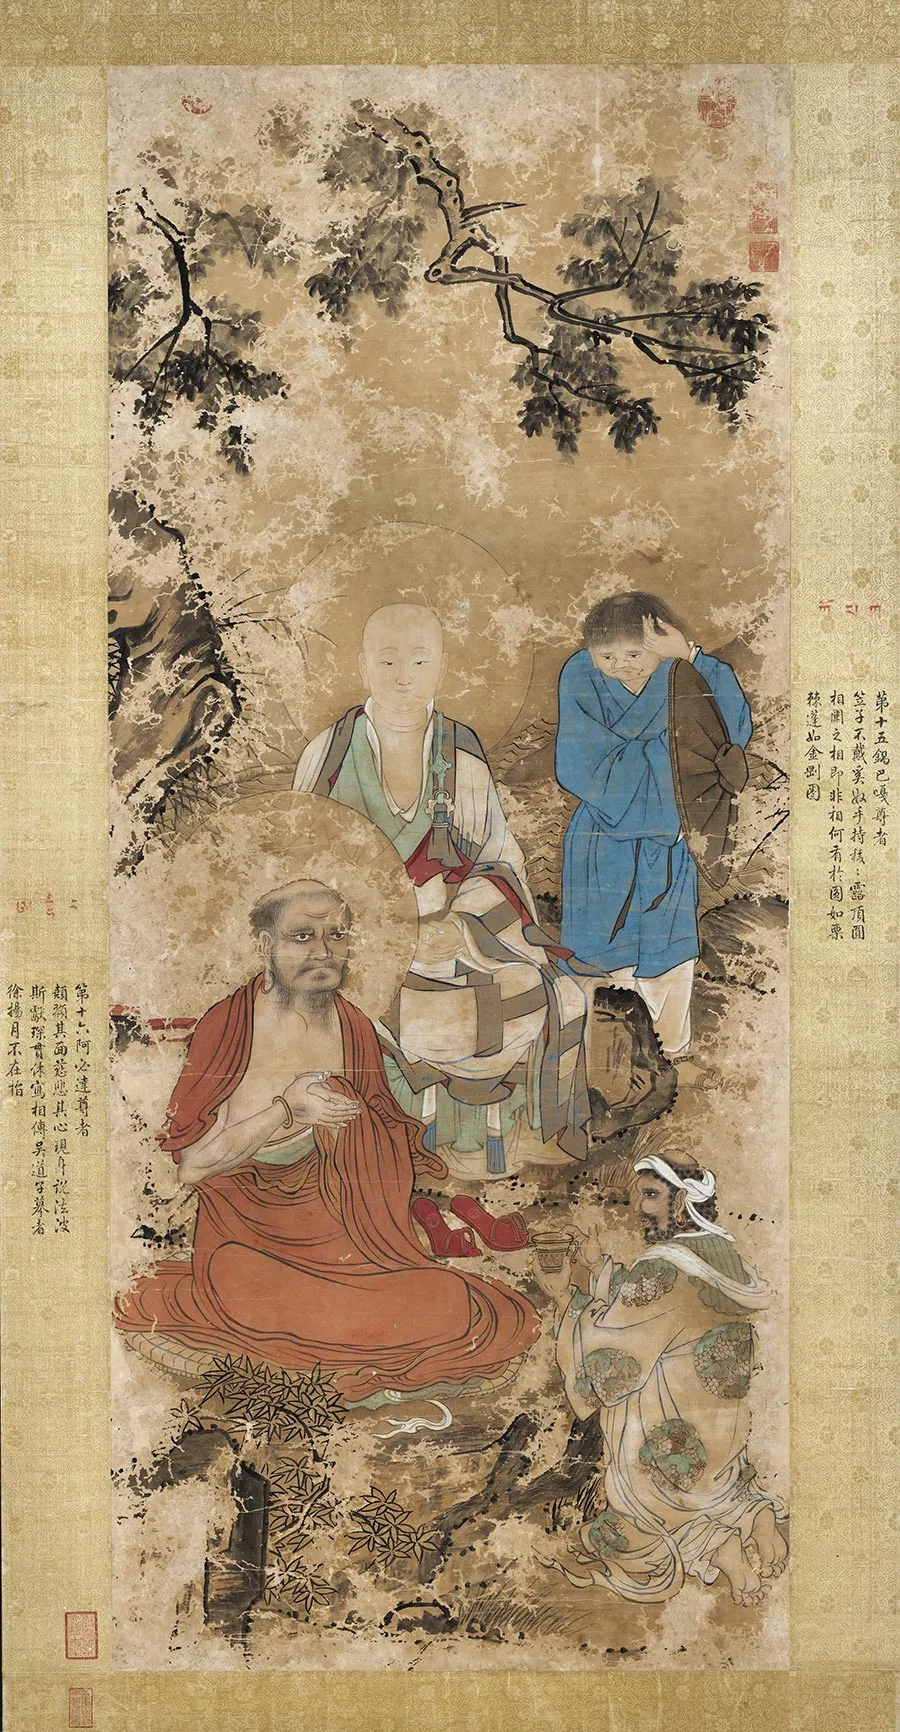 第十五鍋巴嘎尊者
笠子不戴奚奴手持露頂圓
相圓之相即非相何有於圓如栗
棘蓬如金剛圈
第十六阿必達尊者
其面慈悲其心現身說法波
斯獻琛貫休寫相傳吳道子摹者
徐揚月不在指